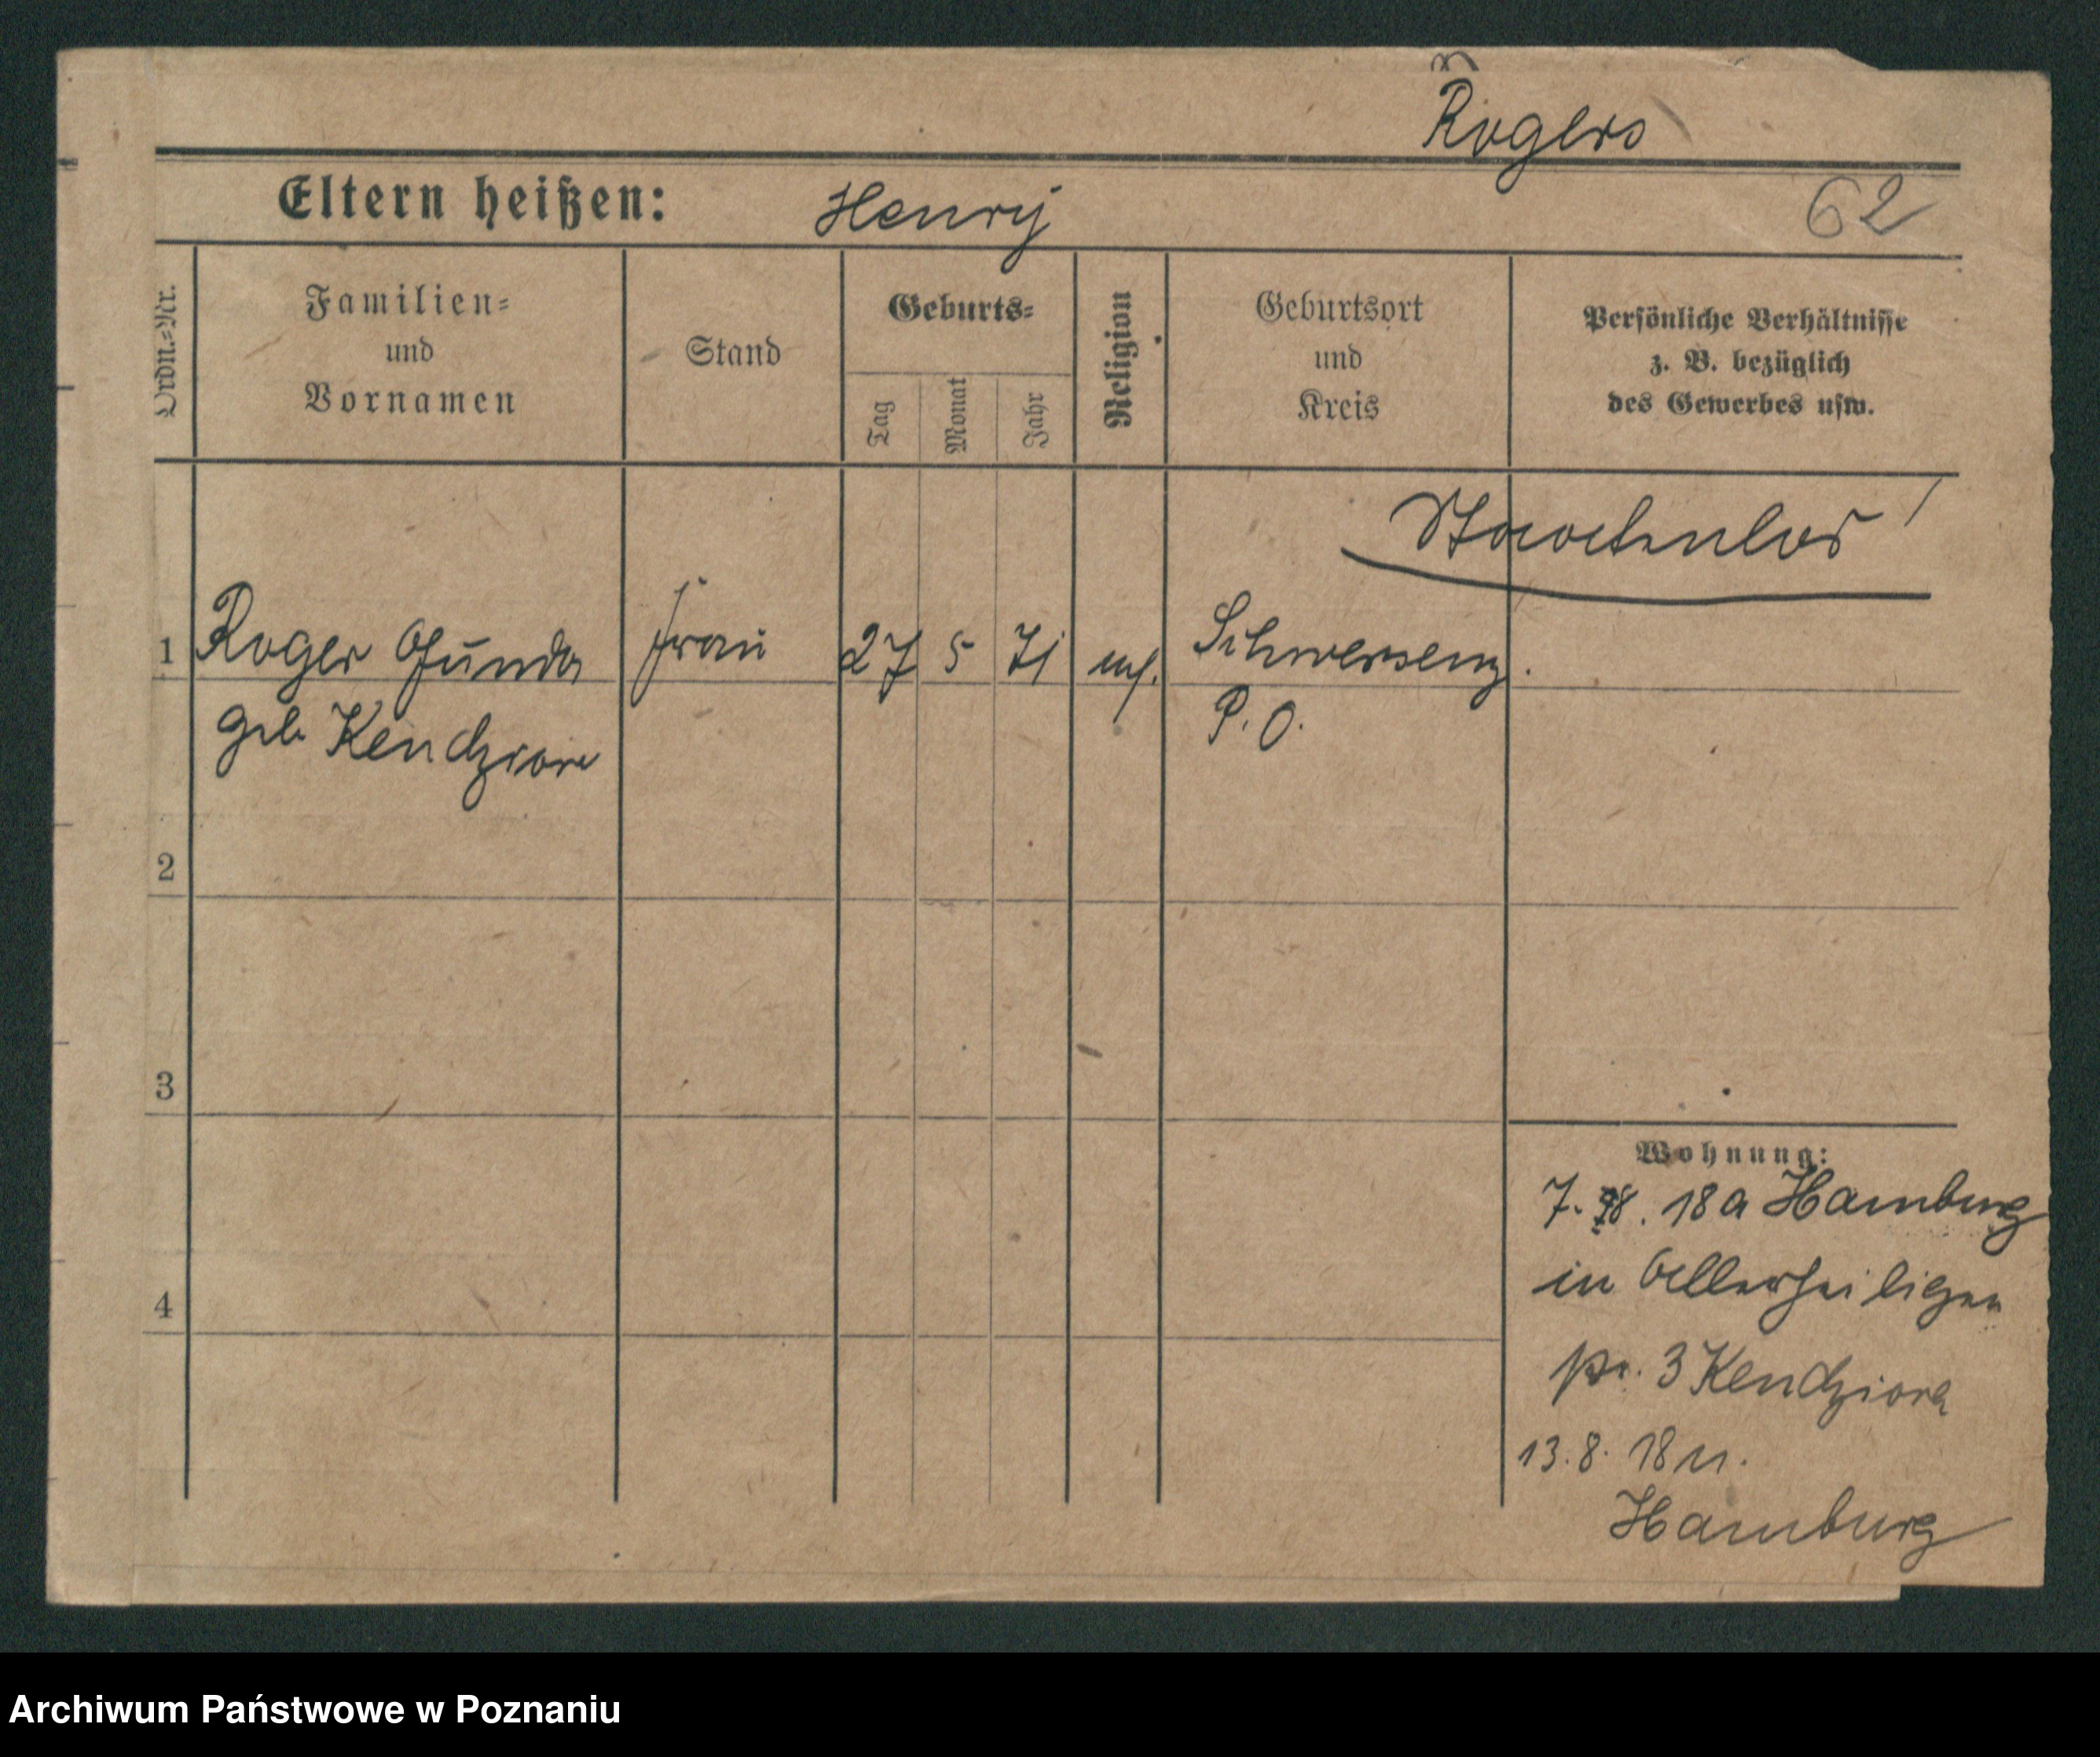 Rogers
Eltern heißen: Henry
62
Ordn.-Nr.
Familien-
und
Vornamen
Stand
Geburts-
Tag
Monat
Jahr
Religion
Geburtsort
und
Kreis
Persönliche Verhältnisse
z. B. bezüglich
des Gewerbes usw.
Staatenlos!
1 Roger Gunda Frau 27 5 71 Schwersenz.
geb Kendziora P. O.
2
3
4
Wohnung:
7. 8. 18 a Hamburg
in Allerheiligen
str. 3 Kendziora
13. 8. 18 n.
Hamburg
Archiwum Państwowe w Poznaniu